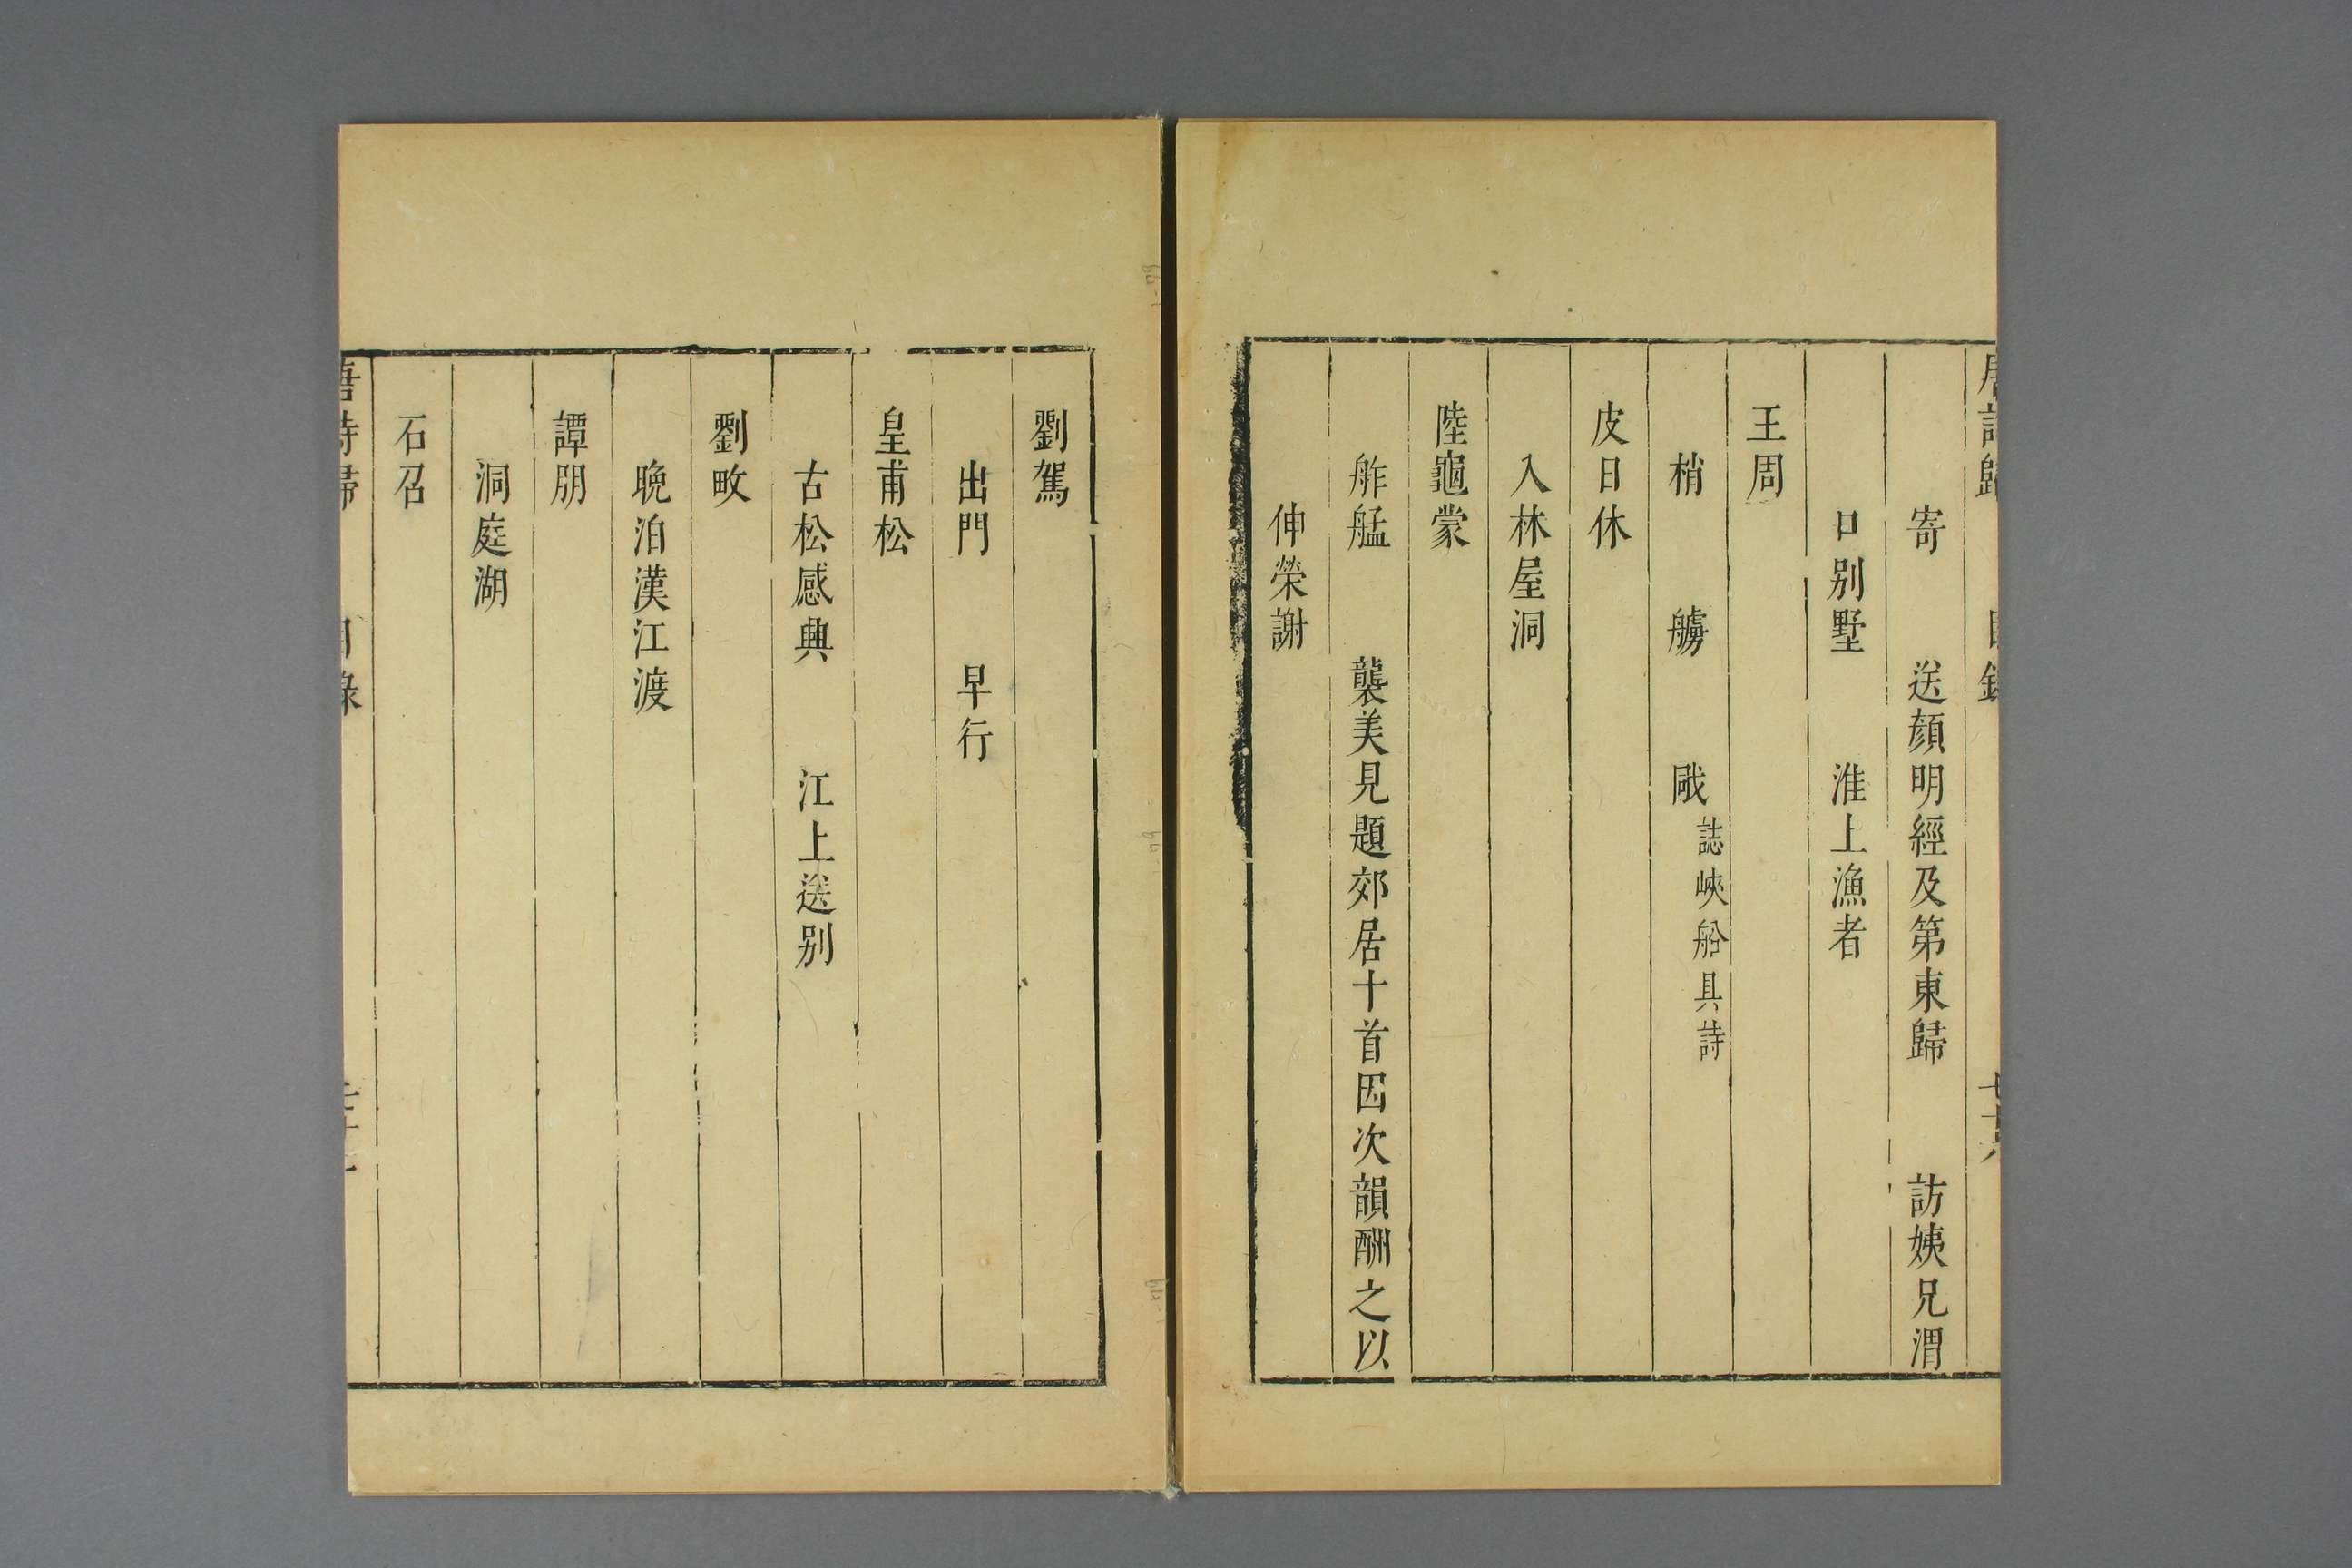 寄 送顏明經及第東歸 訪姨兄渭
口別墅 淮上漁者
王周
梢 艣 戙 誌峽船具詩
皮日休
入林屋洞
陸龜蒙
舴艋 襲美見題郊居十首因次韻酬之以
伸榮謝
劉駕
出門 早行
皇甫松
古松感興 江上送別
劉畋
晚泊漢江渡
譚朋
洞庭湖
石召
唐詩歸 目錄